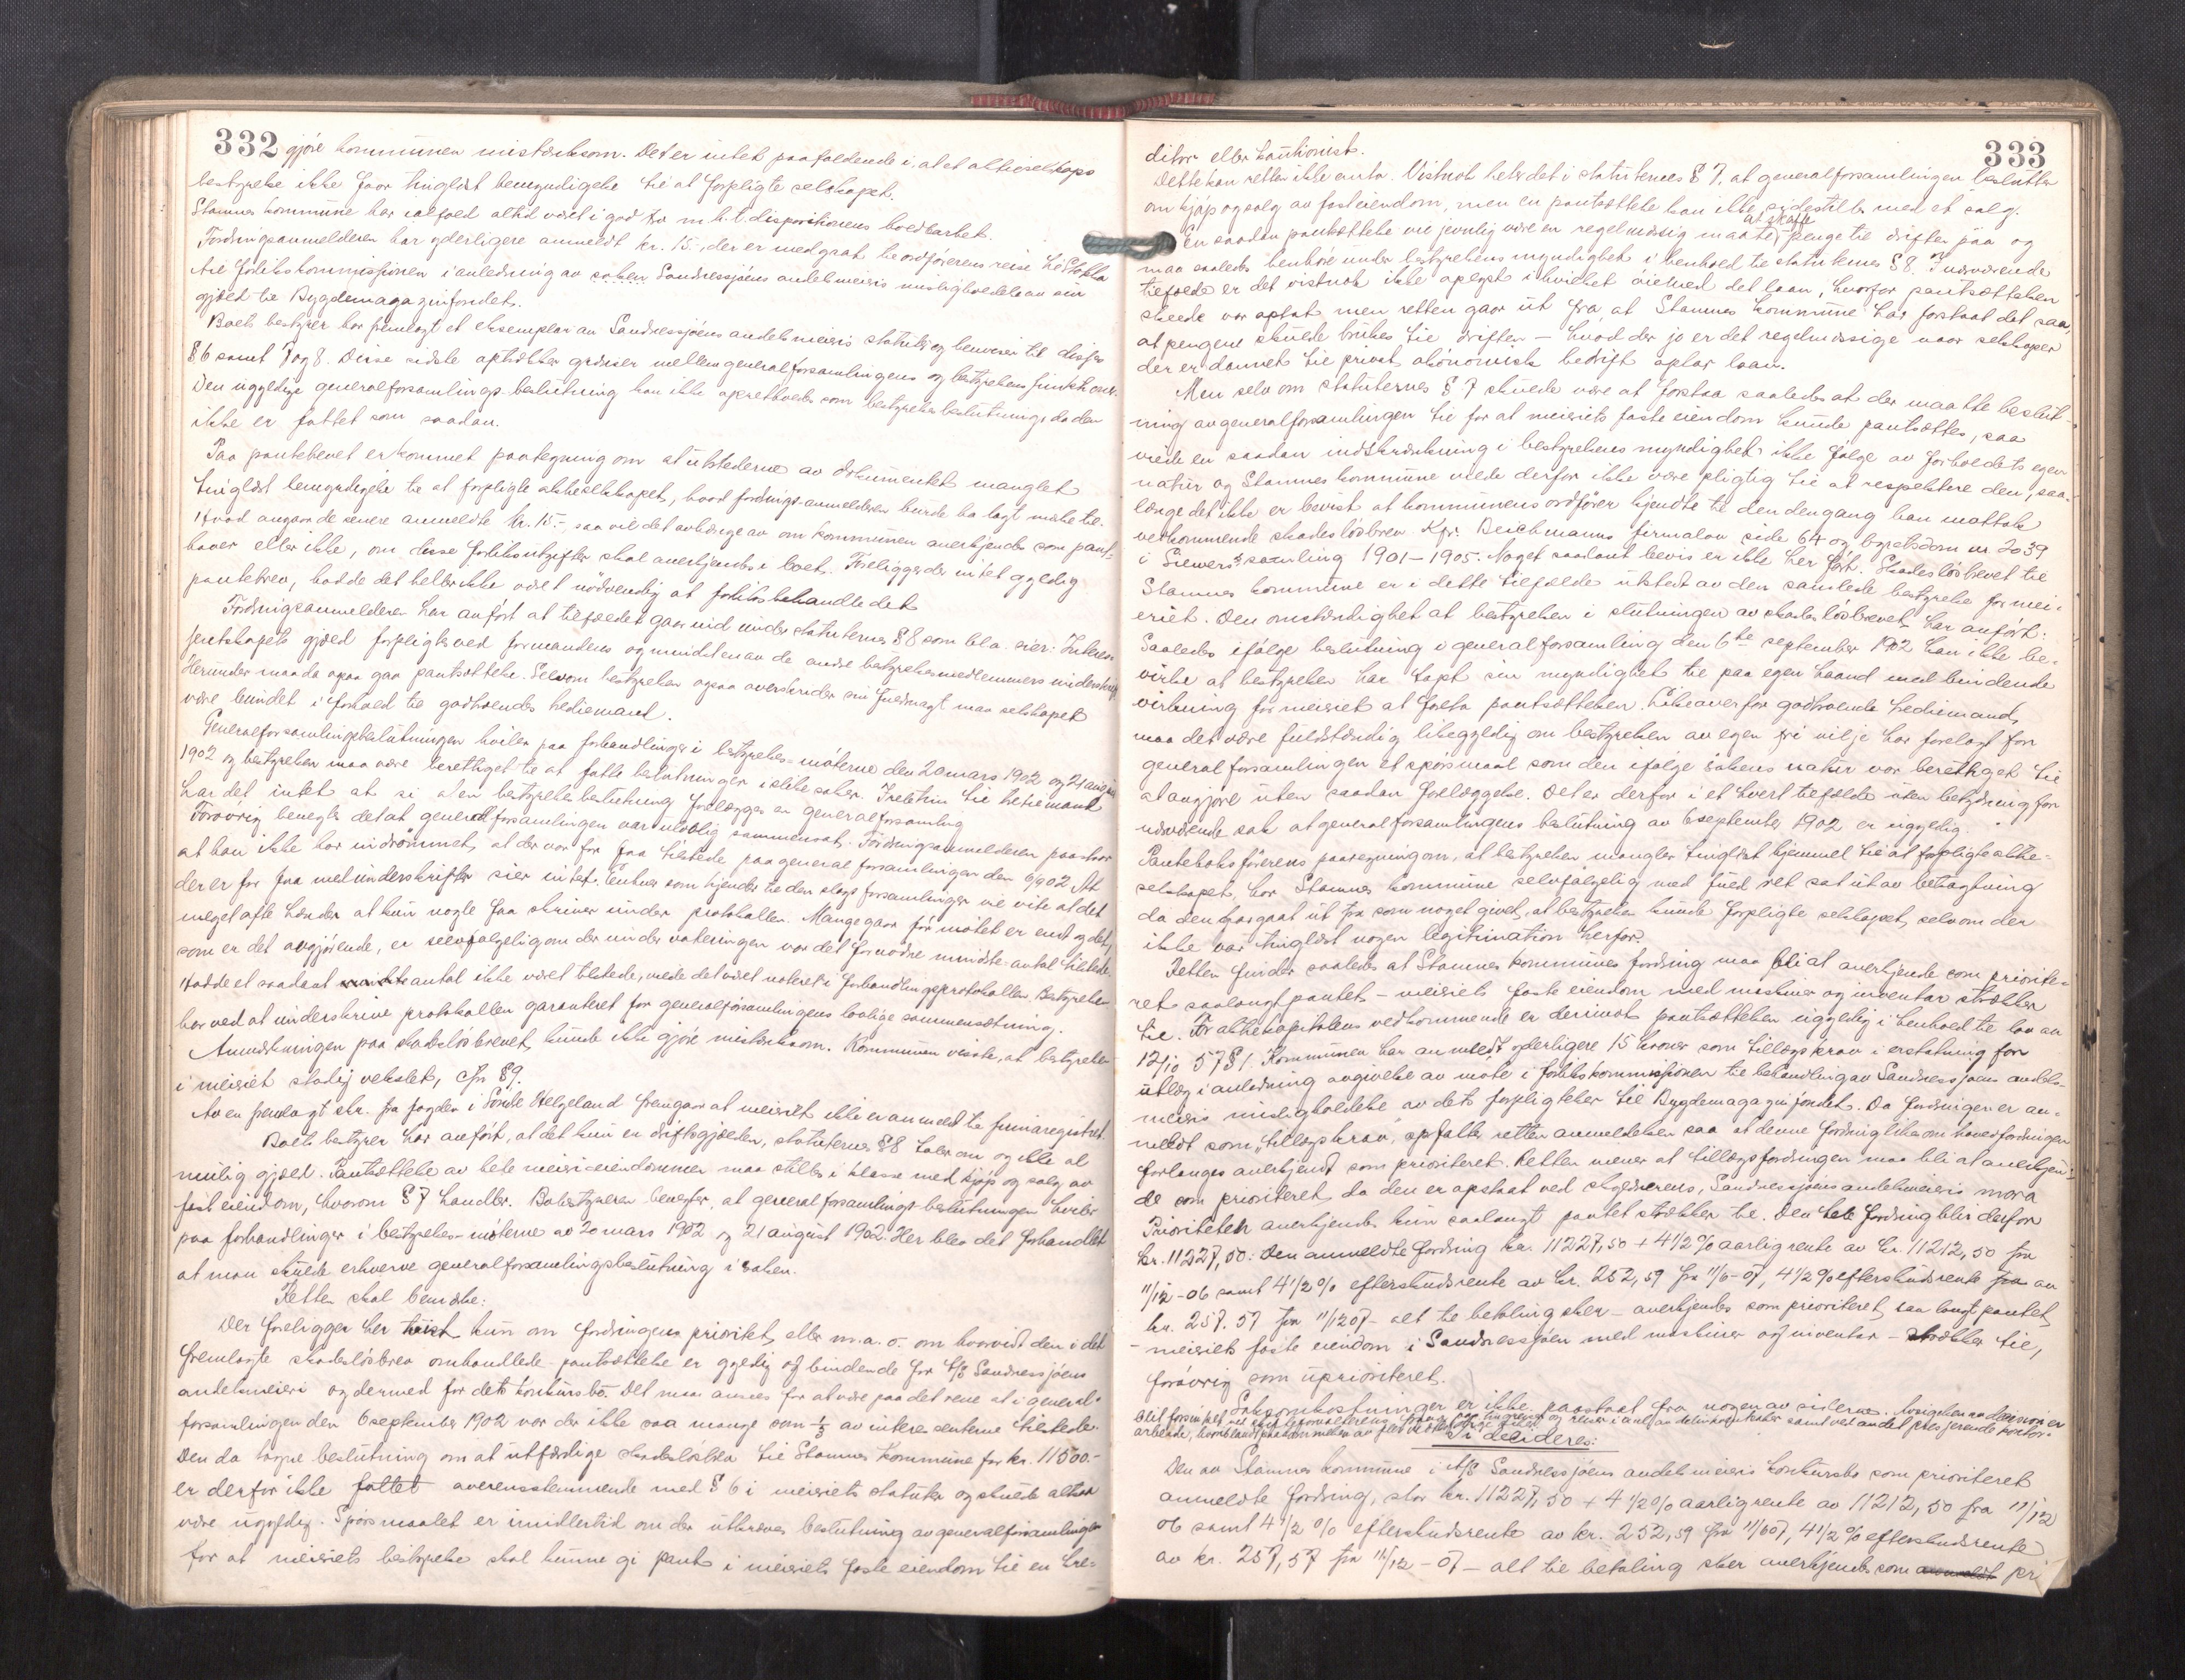 332
gjøre kommunen mistænksom. Det er intet paafaldende i, at et aktieselskaps
bestyrelse ikke faar tinglæst bemyndigelse til at forpligte selskapet.
Stamnes kommune har ialfald altid været i god tro m.h.t. dispositionens holdbarhet.
Fordringsanmelderen har yderligere anmeldt kr. 15.-, der er medgaat til ordførerens reise til
til forlikskommissionen i anledning av saken Sandnessjøens andelsmeieris misligholdelse av sin
gjæld til Bygdemagazinfondet.
Boets bestyrer har fremlagt et eksemplar av Sandnessjøens andelsmeieris statuter og henviser til disses
§ 6 samt 7 og 8. Disse sidste optrækker grænser mellem generalforsamlingens og bestyrelsens funktioner.
Den ugyldige generalforsamlings-beslutning kan ikke opretholdes som bestyrelsesbeslutning, da den
ikke er fattet som saadan.
Paa pantebrevet er kommet paategning om at utstederne av dokumentet manglet
tinglæst bemyndigelse til at forpligte aktieselskapet, hvad fordrings-anmelderen burde ha lagt mærke til.
Hvad angaar de senere anmeldte kr. 15.- saa vil det avhænge av om kommunen anerkjendes som pant-
haver eller ikke, om disse forliksutgifter skal anerkjendes i boet. Foreligger der intet gyldig
pantebrev, hadde det heller ikke været nødvendig at forliksbehandle det
Fordringsanmelderen har anført at tilfældet gaar ind under statuternes § 8 som bl.a. sier: Interes-
sentskapets gjæld forpligtes ved formandens og mindst en av de andre bestyrelsesmedlemmers underskrift
Herunder maa da ogsaa gaa pantsættelse. Selvom bestyrelsen ogsaa overskrider sin fuldmagt maa selskapet
være bundet i forhold til godtroende tredjemand.
Generalforsamlingsbeslutningen hviler paa forhandlinger i bestyrelses-møterne den 20 mars 1902 og 21 august
1902 og bestyrelsen maa være berettiget til at fatte beslutninger i slike saker. I retning til tredjemand
har det intet at si at en bestyrelsesbeslutning forelægges en generalforsamling
Forøvrig benegtes det at generalforsamlingen var ulovlig sammensat. Fordringsanmelderen paastaar
at han ikke har indrømmet, at der var for faa tilstede paa generalforsamlingen den 6/9 02 At
der er for faa med underskrifter sier intet. Enhver som kjender til den slags forsamlinger vil vite at det
meget ofte hænder at kun nogle faa skriver under protokollen. Mange gaar før møtet er endt og det,
som er det avgjørende, er selvfølgelig om der under voteringen var det fornødne mindste-antal tilstede.
Hadde et saadant antal ikke været tilstede, vilde det været noteret i forhandlingsprotokollen. Bestyrelsen
har ved at underskrive protokollen garanteret for generalforsamlingens lovlige sammensætning.
Anmerkningen paa skadesløsbrevet kunde ikke gjøre mistænksom. Kommunen visste, at bestyrelsen
i meieriet stadig vekslet, cfr § 9.
Av en fremlagt skr. fra fogden i Søndre Helgeland fremgaar at meieriet ikke er anmeldt til firmaregistret.
Boets bestyrer har anført, at det kun er driftsgjælden, statuternes § 8 taler om og ikke al
mulig gjæld. Pantsættelse av hele meieri-eiendommen maa stilles i klasse med kjøp og salg av
fast eiendom, hvorom § 7 handler. Bobestyreren benegter, at generalforsamlings-beslutningen hviler
paa forhandlinger i bestyrelses-møterne av 20 mars 1902 og 21 august 1902. Her blev det forhandlet
at man skulde erhverve generalforsamlingsbeslutning i saken.
Retten skal bemerke:
Der foreligger her tvist kun om fordringens prioritet eller m.a.o. om hvorvidt den i det
fremlagte skadesløsbrev omhandlede pantsættelse er gyldig og bindende for A/S Sandnessjøens
andelsmeieri og dermed for dets konkursbo. Det maa ansees for at være paa det rene at i general-
forsamlingen den 6 september 1902 var der ikke saa mange som 1/3 av interessenterne tilstede.
Den da tagne beslutning om at utfærdige skadesløsbrev til Stamnes kommune for kr. 11500.-
er derfor ikke fattet overensstemmende med § 6 i meieriets statuter og skulde altsaa
være ugyldig. Spørsmaalet er imidlertid om der utkræves beslutning av generalforsamlingen
for at meieriets bestyrelse skal kunne gi pant i meieriets faste eiendom til en kre-
333
ditor eller kautionist.
Dette kan retten ikke anta. Vistnok heter det i statuternes § 7, at generalforsamlingen beslutter
om kjøp og salg av fast eiendom, men en pantsættelse kan ikke sidestilles med et salg.
En saadan pantsættelse vil jevnlig være en regelmæssig maate at skaffe penge til driften paa og
maa saaledes henhøre under bestyrelsens myndighet i henhold til statuternes § 8. I nærværende
tilfælde er det vistnok ikke oplyst i hvilket øiemed det laan, hvorfor pantsættelsen
skeede var optat men retten gaar ut fra, at Stamnes kommune har forstaat det saa,
at pengene skulde brukes til driften - hvad der jo er det regelmæssige naar selskaper
der er dannet til privat økonomisk bedrift optar laan.
Men selv om statuternes § 7 skulde være at forstaa saaledes at der maatte beslut-
ning av generalforsamlingen til for at meieriets faste eiendom kunde pantsættes, saa
vilde en saadan indskrænkning i bestyrelsens myndighet ikke følge av forholdets egen
natur og Stamnes kommune vilde derfor ikke være pligtig til at respektere den, saa-
længe det ikke er bevist at kommunens ordfører kjendte til den dengang han mottok
vedkommende skadesløsbrev. Kfr. Beichmanns firmalov side 64 og byretsdom nr 2039
i Siewers samling 1901-1905. Noget saadant bevis er ikke her ført. Skadesløsbrevet til
Stamnes kommune er i dette tilfælde utstedt av den samlede bestyrelse for mei-
eriet. Den omstændighet at bestyrelsen i slutningen av skadesløsbrevet har anført:
Saaledes ifølge beslutning i generalforsamling den 6te september 1902 kan ikke be-
virke at bestyrelsen har tapt sin myndighet til paa egen haand med bindende
virkning for meieriet at foreta pantsættelsen. Likeoverfor godtroende tredjemand
maa det være fuldstændig likegyldig om bestyrelsen av egen fri vilje har forelagt for
generalforsamlingen et spørsmaal som den ifølge sakens natur var berettiget til
at avgjøre uten saadan forelæggelse. Det er derfor i et hvert tilfælde uten betydning for
nærværende sak at generalforsamlingens beslutning av 6 september 1902 er ugyldig.
Pantebokførerens paategning om, at bestyrelsen mangler tinglæst hjemmel til at forpligte aktie-
selskapet har Stamnes kommune selvfølgelig med fuld ret sat ut av betragtning
da den har gaat ut fra som noget givet, at bestyrelsen kunde forpligte selskapet, selvom der
ikke var tinglæst nogen legitimation herfor.
Retten finder saaledes at Stamnes kommunes fordring maa bli at anerkjende som priorite-
ret saalangt pantet - meieriets faste eiendom med maskiner og inventar strækker
til. For aktiekapitalens vedkommende er derimot pantsættelsen ugyldig i henhold til lov av
12/10 57 § 1. Kommunen har anmeldt yderligere 15 kroner som tillægskrav i erstatning for
utlæg i anledning avgivelse av møte i forlikskommissionen til behandling av Sandnessjøens andels-
meieris misligholdelse av dets forpligtelser til Bygdemagazinfondet. Da fordringen er an-
meldt som "tillægskrav", opfatter retten anmeldelsen saa at denne fordring likesom hovedfordringen
forlanges anerkjendt som prioriteret. Retten mener at tillægsfordringen maa bli at anerkjen-
de som prioriteret da den er opstaat ved skyldnerens, Sandnessjøens andelsmeieris mora
Prioriteten anerkjendes kun saalangt pantet strækker til. Den hele fordring blir derfor
kr. 11227,50: Den anmeldte fordring kr. 11227,50 + 4 1/2 % aarlig rente av kr. 11212,50 fra
11/12-06 samt 4 1/2 % efterskudsrente av kr. 252,59 fra 11/6-07, 4 1/2 % efterskudsrente av
kr. 257.57 fra 11/12 07 - alt til betaling sker - anerkjendes som prioriteret, saa langt pantet
- meieriets faste eiendom i Sandnessjøen med maskiner og inventar - strækker til,
forøvrig som uprioriteret.
Saksomkostninger er ikke paastaat fra nogen av siderne. Avsigelsen av dommen er
blit forsinket ved og reiser i anl. av samt ved andet presserende kontor-
arbeide,
Ti decideres:
Den av Stamnes kommune i A/S Sandnessjøens andelsmeieris konkursbo som prioriteret
anmeldte fordring, stor kr. 11227,50 + 4 1/2 % aarlig rente av 11212,50 fra 11/12
06 samt 4 1/2 % efterskudsrente av kr. 252,59 fra 11/6 07, 4 1/2 % efterskudsrente
av kr. 257,57 fra 11/12-07 - alt til betaling sker anerkjendes som pri